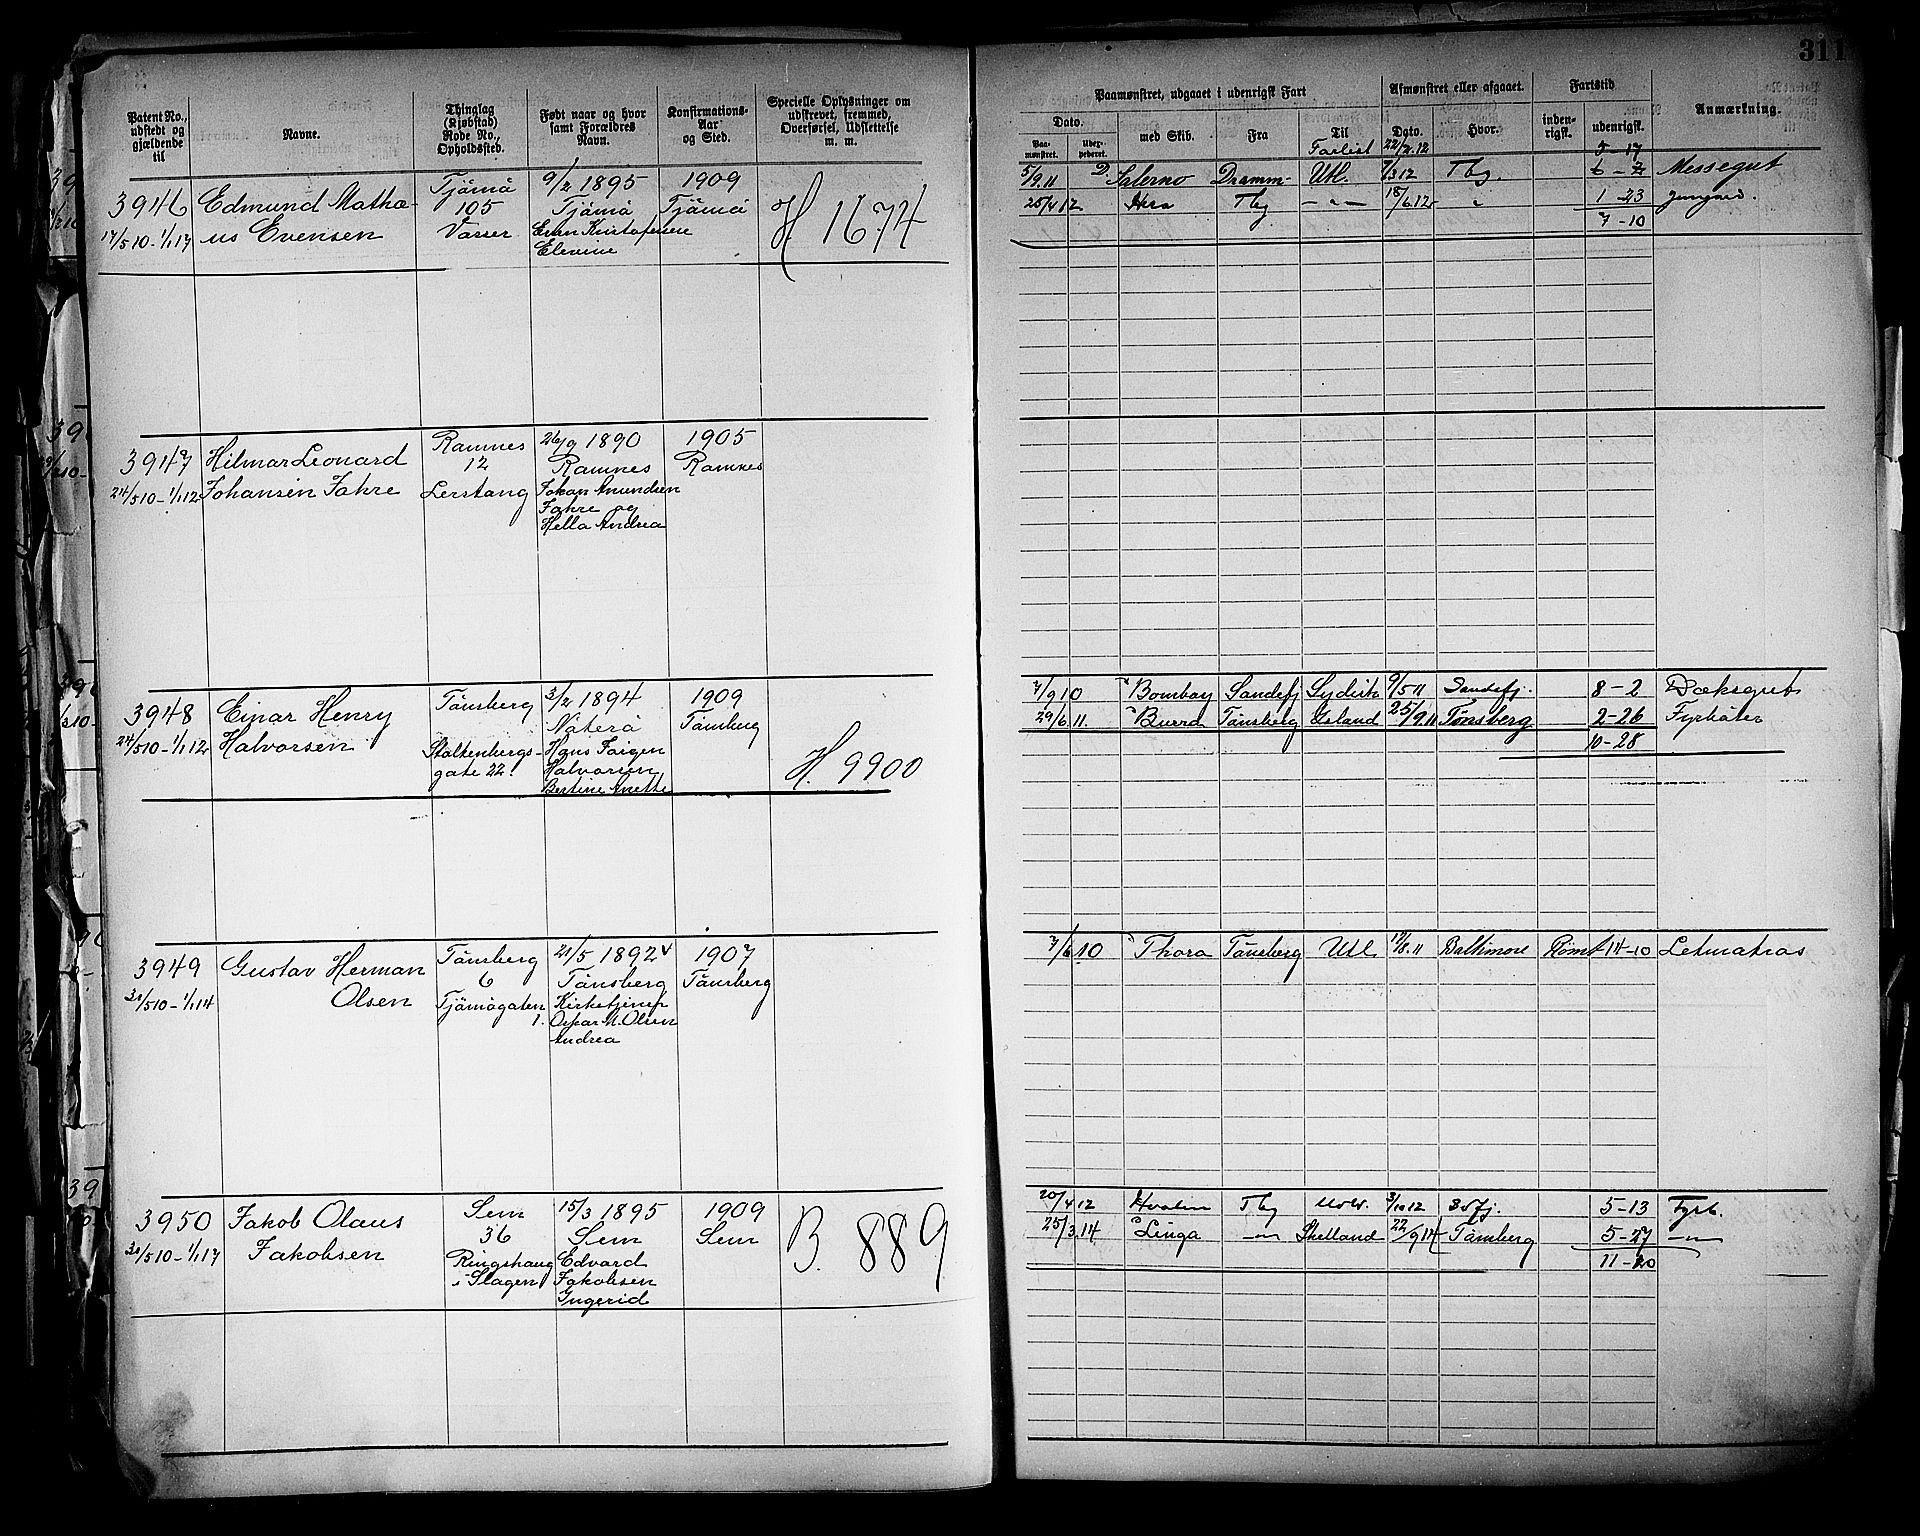 311
Patent No., udstedt og gjældende til
Navne.
Thinglag (Kjøbstad) Rode No., Opholdssted.
Født naar og hvor samt Forældres Navn.
Konfirmations-Aar og Sted.
Specielle Oplysninger om udskrevet, fremmed, Overførsel, Udslettelse m. m.
Paamønstret, udgaaet i udenrigsk Fart
Afmønstret eller afgaaet.
Fartstid
Anmærkning.
Dato.
med Skib.
Fra
Til
Dato.
Hvor.
inden-rigsk.
udenrigsk.
Paa-mønstret.
3946
17/5 10 - 1/1 17
Edmund Mathæ-
us Evensen
Tjømø
105
Vasser
9/2 1895
Tjømø
Even Kristofersen
Elevine
1909
Tjømø
H. 1674
Forlist 22/2.12 5-17
5/9.11 D. Salerno Dramm- Utl. 7/3 12 Tbg. 6-7 Messegut
25/4 12 Hera Tbg -"- 18/6.12 " 1-23 Jungmd.
7-10
3947
24/5 10 - 1/1 12
Hilmar Leonard
Johansen Fahre
Ramnes
12
Lerstang
26/9 1890
Ramnes
Johan Amundsen
Fahre og
Hella Andrea
1905
Ramnes
3948
24/5 10 - 1/1 12
Einar Henry
Halvorsen
Tønsberg
Stoltenbergs-
gate 22.
3/2 1894
Nøterø
Hans Jørgen
Halvorsen
Bertine Anette
1909
Tønsberg
H. 9900
7/9 10 Bombay Sandefj Sydish 9/5 11 Sandefj. 8-2 Dæksgut
29/6.11. Burra Tønsberg Island 25/9.11 Tønsberg 2-26 Fyrbøter
10-28
3949
31/5 10 - 1/1 14
Gustav Herman
Olsen
Tønsberg
6
Tjømøgaten
1.
21/5 1892
Tønsberg
Oskar M. Olsen
Andrea
1907
Tønsberg
7/6 10 Thora Tønsberg Utl 17/8.11 Baltimore Rømt 14-10 Letmatros
3950
31/5 10 - 1/1 17
Jakob Olaus
Jakobsen
Sem
36
Ringshaug
i Slagen
15/3 1895
Sem
Edvard
Jakobsen
Ingerid
1909
Sem
B. 889
20/4 12 Hvalen Tbg 3/10 12 5-13 Fyrb.
25/3.14 Linga -"- Shetland 22/9 14 Tønsberg 5-27 -"-
11-20